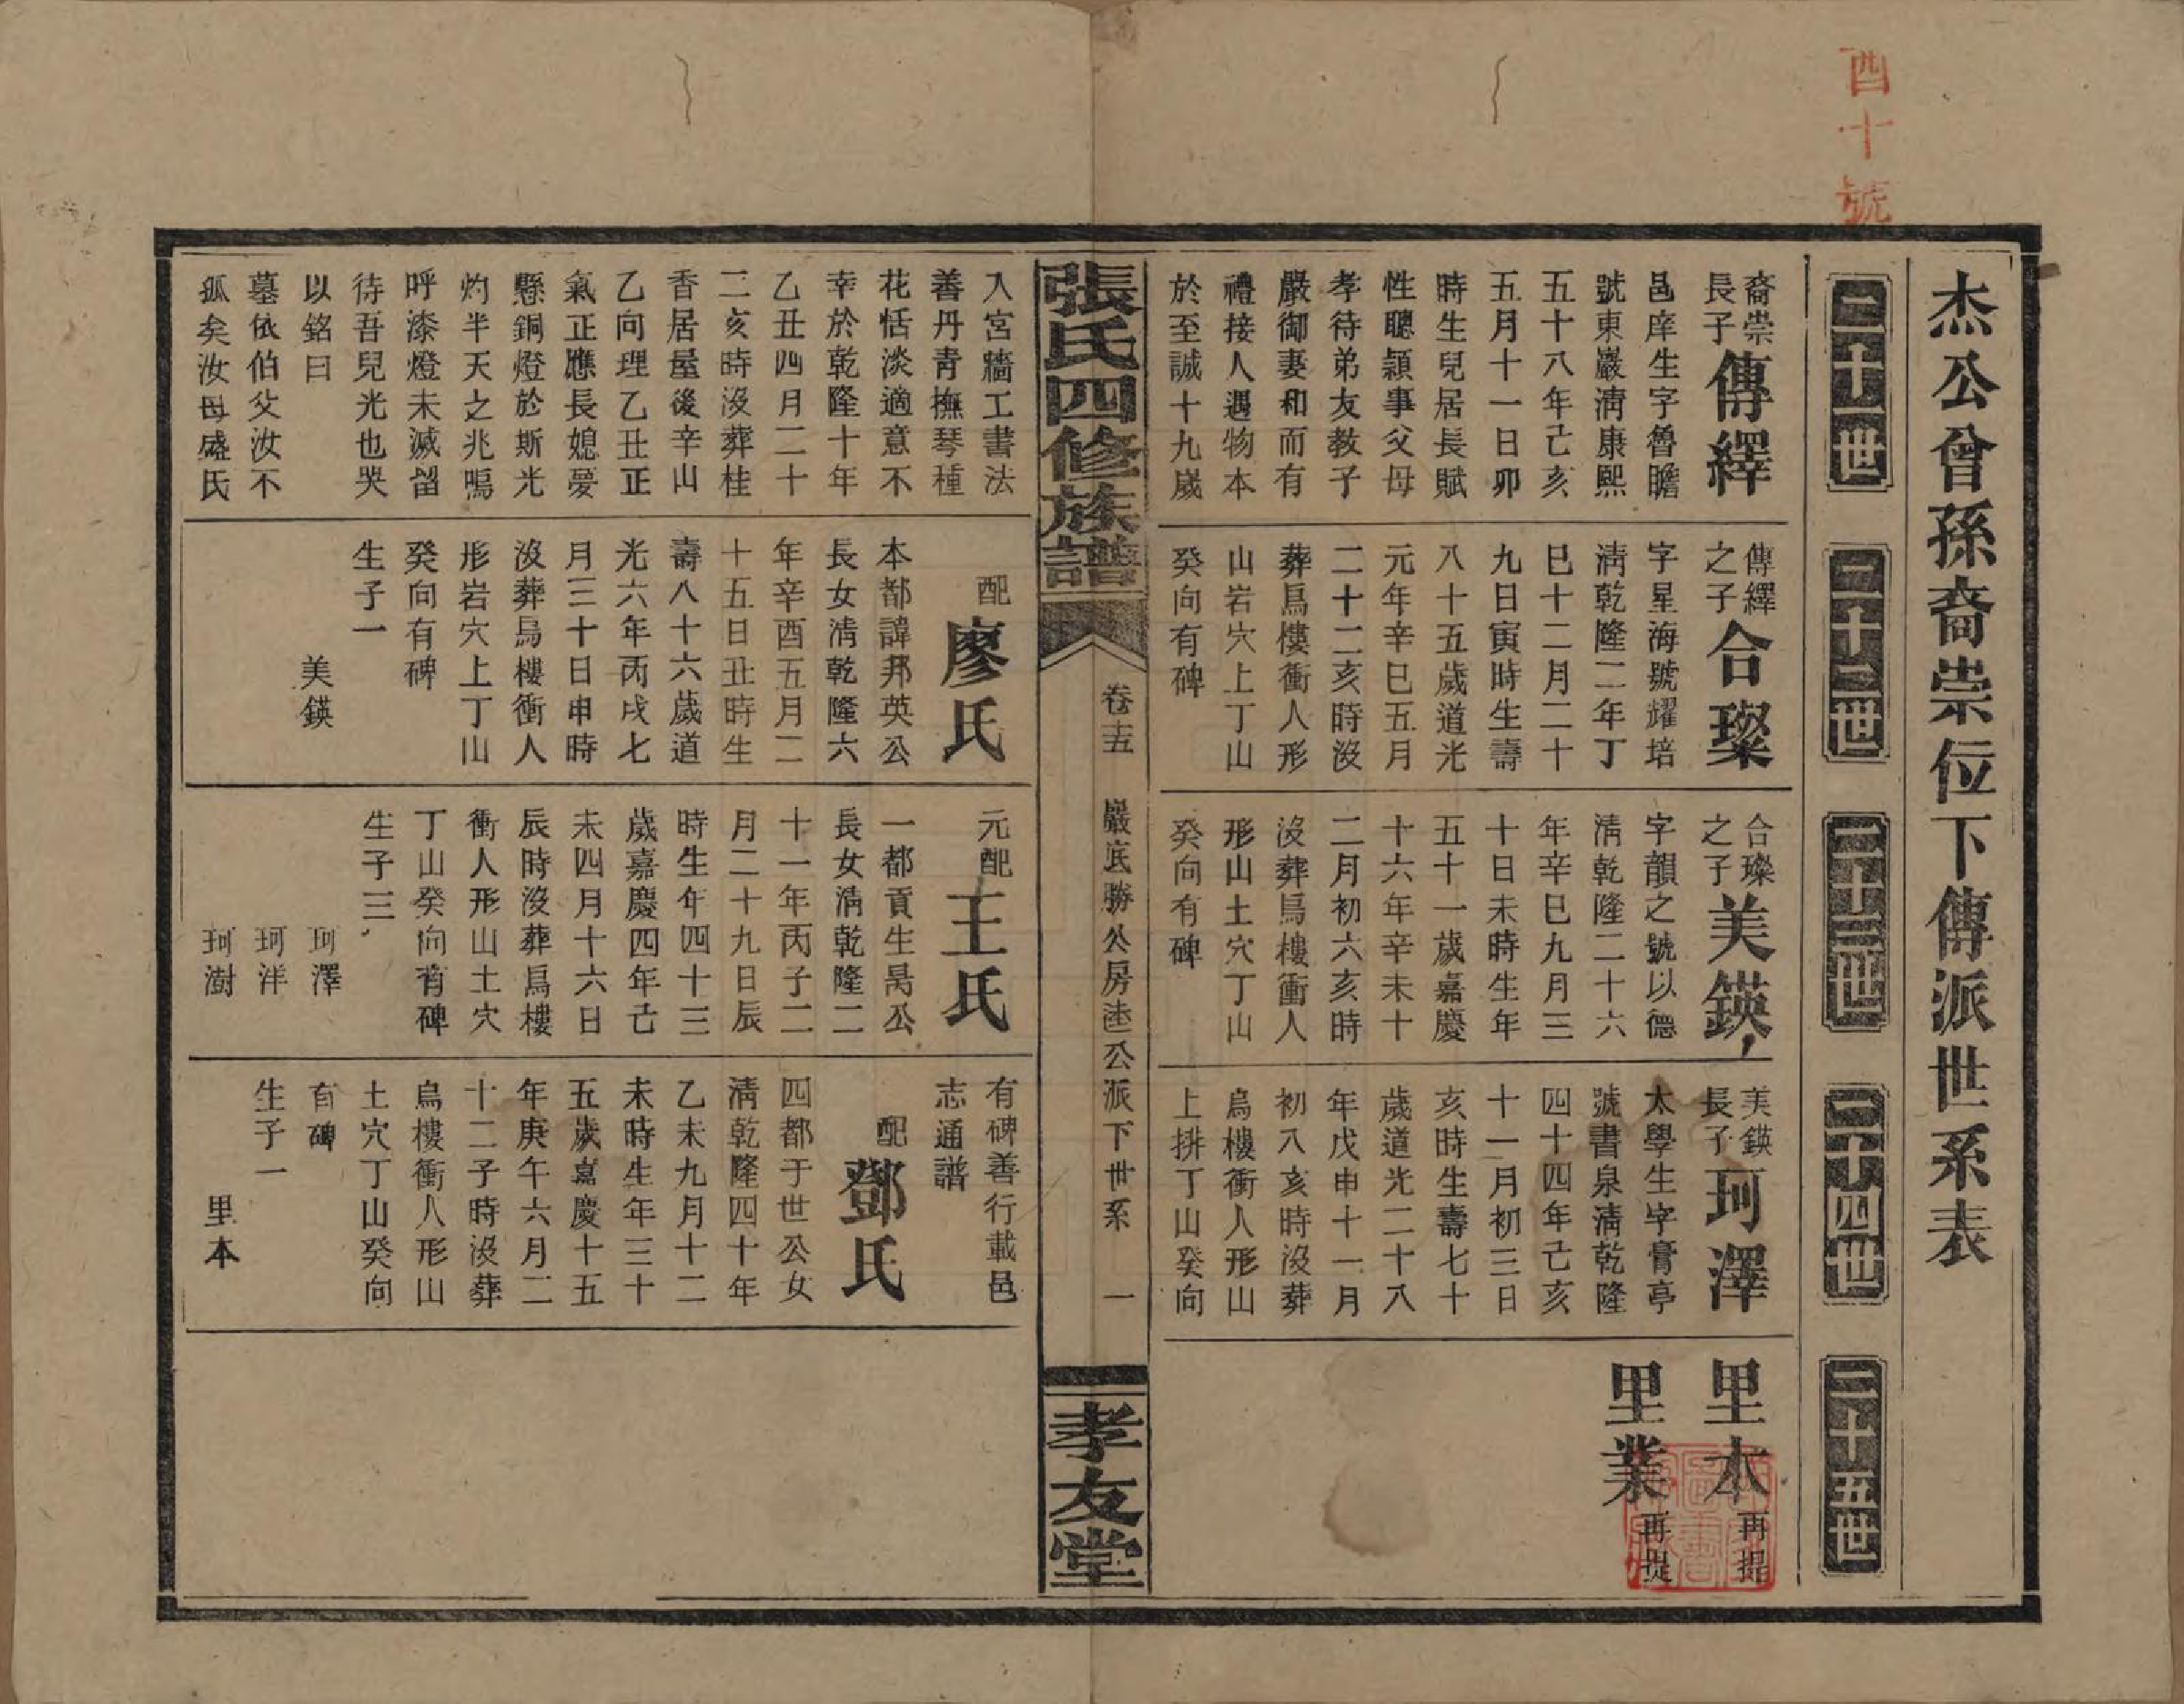 酉十號
杰公曾孫裔崇位下傳派世系表
二十一世
二十二世
二十三世
二十四世
二十五世
裔崇
長子
傳繹
邑庠生字魯瞻
號東巖清康熙
五十八年己亥
五月十一日卯
時生兒居長賦
性聰穎事父母
孝待弟友教子
嚴御妻和而有
禮接人遇物本
於至誠十九歲
傳繹
之子
合璨
字星海號耀培
清乾隆二年丁
巳十二月二十
九日寅時生壽
八十五歲道光
元年辛巳五月
二十二亥時沒
葬烏樓衝人形
山岩穴上丁山
癸向有碑
合璨
之子
美鍈
字韻之號以德
清乾隆二十六
年辛巳九月三
十日未時生年
五十一歲嘉慶
十六年辛未十
二月初六亥時
沒葬烏樓衝人
形山土穴丁山
癸向有碑
美鍈
長子
珂澤
太學生字膏亭
號書泉清乾隆
四十四年己亥
十一月初三日
亥時生壽七十
歲道光二十八
年戊申十一月
初八亥時沒葬
烏樓衝人形山
上排丁山癸向
里本 再提
里業 再提
張氏四修族譜
卷十五
巖底勝公房逵公派下世系
一
孝友堂
入宮牆工書法
善丹青撫琴種
花恬淡適意不
幸於乾隆十年
乙丑四月二十
二亥時沒葬桂
香居屋後辛山
乙向理乙丑正
氣正應長媳夢
懸銅燈於斯光
灼半天之兆嗚
呼漆燈未滅留
待吾兒光也哭
以銘曰
墓依伯父汝不
孤矣汝母盛氏
配
廖氏
本都諱邦英公
長女清乾隆六
年辛酉五月二
十五日丑時生
壽八十六歲道
光六年丙戌七
月三十日申時
沒葬烏樓衝人
形岩穴上丁山
癸向有碑
生子一
美鍈
元配
王氏
一都貢生昺公
長女清乾隆二
十一年丙子二
月二十九日辰
時生年四十三
歲嘉慶四年己
未四月十六日
辰時沒葬烏樓
衝人形山土穴
丁山癸向有碑
生子三
珂澤
珂洋
珂澍
有碑善行載邑
志通譜
配
鄧氏
四都于世公女
清乾隆四十年
乙未九月十二
未時生年三十
五歲嘉慶十五
年庚午六月二
十二子時沒葬
烏樓衝人形山
土穴丁山癸向
有碑
生子一
里本